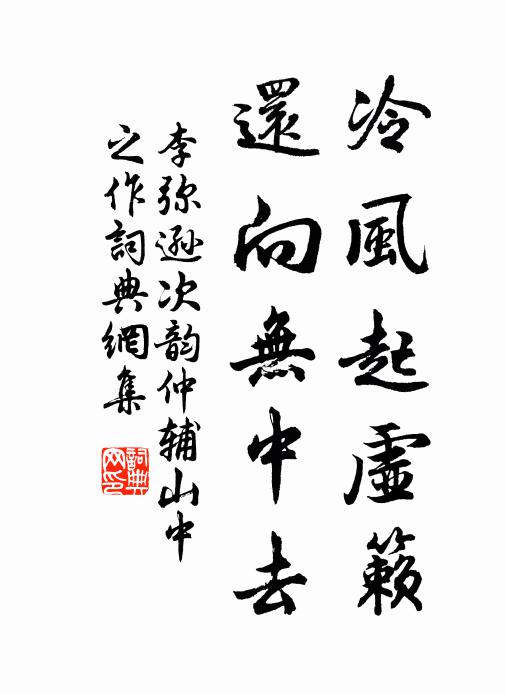 冷風起虛籟
還向無中去
李弥遜次韵仲辅山中
之作詞典網集
詞典
网印